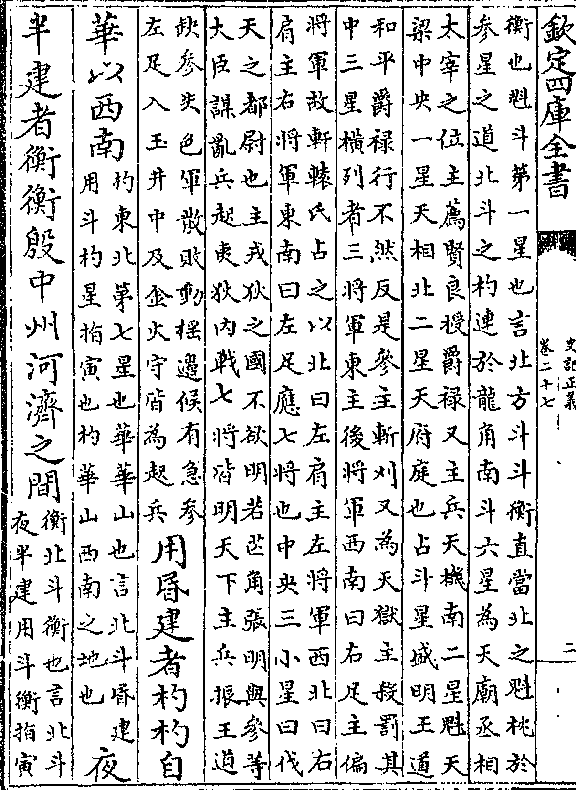 欽定四庫全書
史記正義
卷二十七
二
衡也魁斗第一星也言北方斗斗衡直當北之魁枕於
參星之道北斗之杓連於龍角南斗六星為天廟丞相
太宰之位主薦賢良授爵祿又主兵天機南二星魁天
梁中央一星天相北二星天府庭也占斗星盛明王道
和平爵祿行不然反是參主斬刈又為天獄主殺罰其
中三星橫列者三將軍東主後將軍西南曰右足主偏
將軍故軒轅氏占之以北曰左肩主左將軍西北曰右
肩主右將軍東南曰左足應七將也中央三小星曰伐
天之都尉也主戎狄之國不欲明若芒角張明與參等
大臣謀亂兵起夷狄內戰七將皆明天下主兵振王道
缺參失色軍散敗動搖邊候有急參
左足入玉井中及金火守皆為起兵
用昏建者杓杓自
華以西南
杓東北第七星也華華山也言北斗昏建
用斗杓星指寅也杓華山西南之地也
夜
半建者衡衡殷中州河濟之間
衡北斗衡也言北斗
夜半建用斗衡指寅